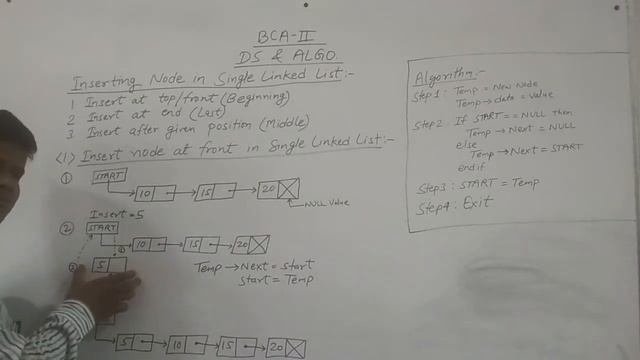 BCA-II
DS & ALGO.
Inserting Node in Single Linked List:-
1 Insert at top/front (Beginning)
2 Insert at end (Last)
3 Insert after given position (Middle)
(1) Insert node at front in Single Linked List:-
① START
10 15 20
NULL Value
Insert = 5
② START
10 15 20
5
Temp → Next = Start
Start = Temp
5 10 15 20
Algorithm:-
Step 1: Temp = New Node
Temp → data = Value
Step 2: If START == NULL then
Temp → Next = NULL
else
Temp → Next = START
end if
Step3: START = Temp
Step4: Exit